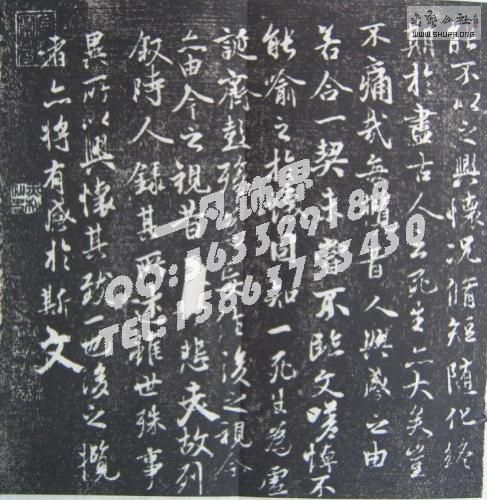 能不以之興懷况脩短隨化終
期於盡古人云死生亦大矣豈
不痛哉每攬昔人興感之由
若合一契未嘗不臨文嗟悼不
能喻之於懷固知一死生為虛
誕齊彭殤為妄作後之視今
亦由今之視昔悲夫故列
敘時人錄其所述雖世殊事
異所以興懷其致一也後之攬
者亦將有感於斯文
一凡饰界
QQ:563399188
TEL:15863753430
书艺公社
WWW.SHUFA.ORG